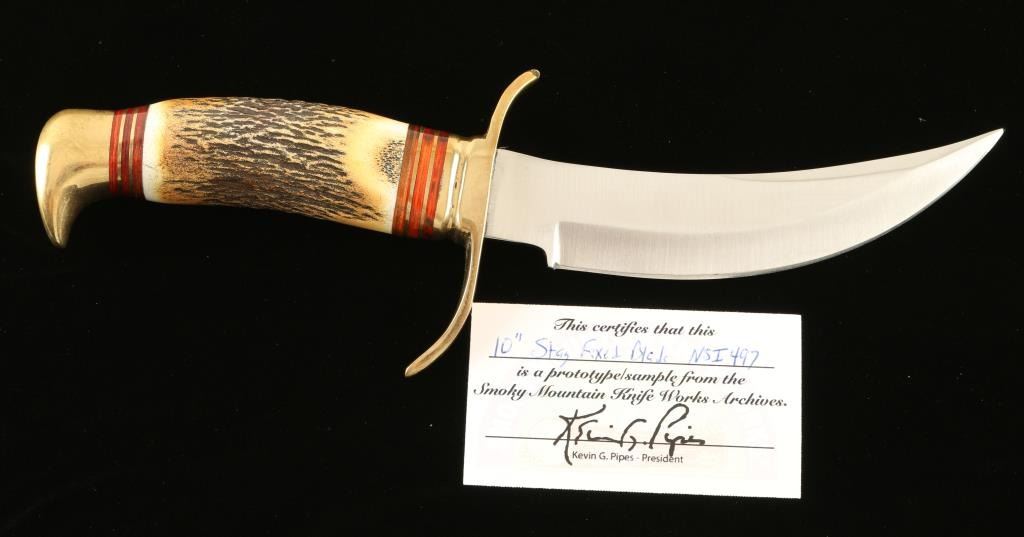 This certifies that this
10" Stag Fixed Blade NSI 497
is a prototype/sample from the
Smoky Mountain Knife Works Archives.
Kevin G. Pipes
Kevin G. Pipes - President